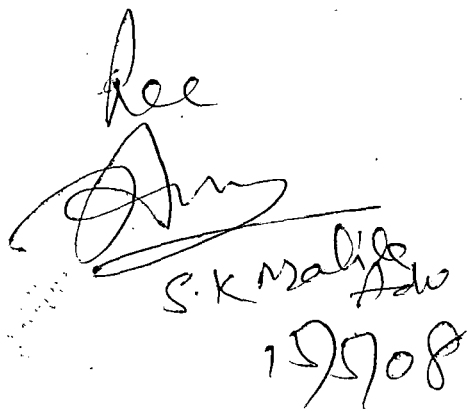 Rec
S.K Malik
Adv
15/5/08